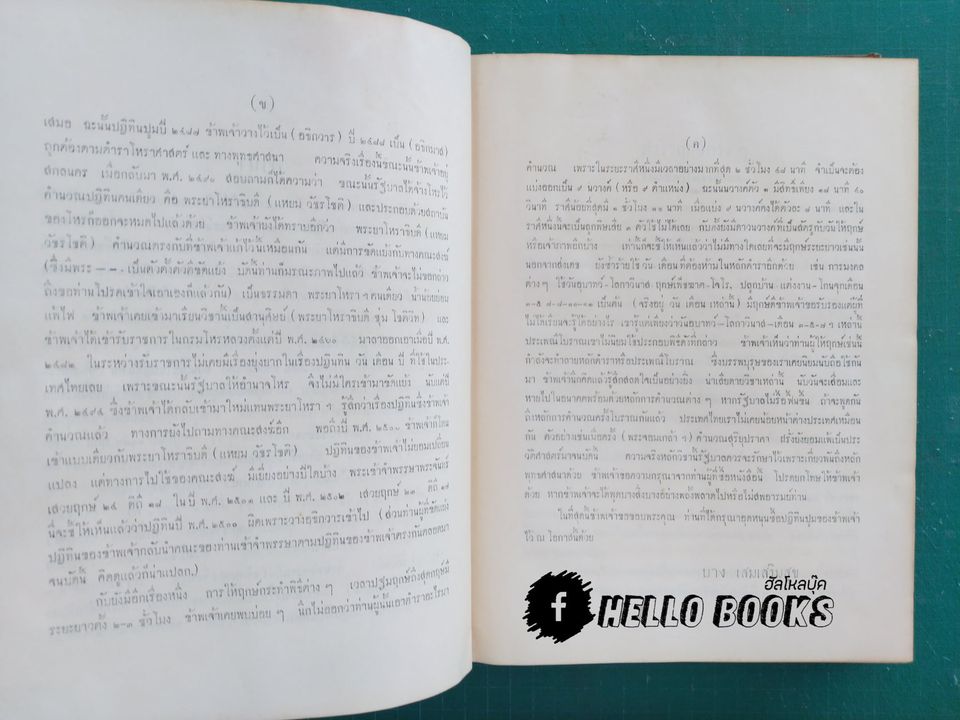 (ข)
เสมอ ฉะนั้นปฏิทินปูมปี ๒๔๘๗ ข้าพเจ้าวางไว้เป็น (อธิกวาร) ปี ๒๔๘๘ เป็น (อธิกมาส)
ถูกต้องตามตำราโหราศาสตร์ และ ทางพุทธศาสนา ความจริงเรื่องนี้ขณะนั้นข้าพเจ้าอยู่
สกลนคร เมื่อกลับมา พ.ศ. ๒๔๙๐ สอบถามก็ได้ความว่า ขณะนั้นรัฐบาลได้จ้างโหรไว้
คำนวณปฏิทินคนเดียว คือ พระยาโหราธิบดี (แหยม วัชรโชติ) และประกอบด้วยสถาบัน
ของโหรก็ออกจะหมดไปแล้วด้วย ข้าพเจ้ายังได้ทราบอีกว่า พระยาโหราธิบดี (แหยม
วัชรโชติ) คำนวณตรงกับที่ข้าพเจ้าแก้ไว้นี้เหมือนกัน แต่มีการขัดแย้งกับทางคณะสงฆ์
(ซึ่งมีพระ —— เป็นตัวตั้งตัวตีขัดแย้ง บัดนี้ท่านก็มรณะภาพไปแล้ว ข้าพเจ้าจะไม่ขอกล่าว
ถึงขอท่านโปรดเข้าใจเอาเองก็แล้วกัน) เป็นธรรมดา พระยาโหรา ฯ คนเดียว น้ำน้อยย่อม
แพ้ไฟ ข้าพเจ้าเคยเข้ามาเรียนวิชานี้เป็นสานุศิษย์ (พระยาโหราธิบดี ชุ่ม โชติวิท) และ
ข้าพเจ้าได้เข้ารับราชการในกรมโหรหลวงตั้งแต่ปี พ.ศ. ๒๔๖๐ มาลาออกเอาเมื่อปี พ.ศ.
๒๔๘๒ ในระหว่างรับราชการไม่เคยมีเรื่องยุ่งยากในเรื่องปฏิทิน วัน เดือน ปี ที่ใช้ในประ-
เทศไทยเลย เพราะขณะนั้นรัฐบาลให้อำนาจโหร จึงไม่มีใครเข้ามาขัดแย้ง นับแต่ปี
พ.ศ. ๒๔๙๔ ซึ่งข้าพเจ้าได้กลับเข้ามาใหม่แทนพระยาโหรา ฯ รู้สึกว่าเรื่องปฏิทินซึ่งข้าพเจ้า
คำนวณแล้ว ทางการยังไปถามทางคณะสงฆ์อีก พอถึงปี พ.ศ. ๒๕๐๐ ข้าพเจ้าก็โดน
เข้าแบบเดียวกับพระยาโหราธิบดี (แหยม วัชรโชติ) ปฏิทินของข้าพเจ้าไม่ยอมเปลี่ยน
แปลง แต่ทางการไปใช้ของคณะสงฆ์ มีเยี่ยงอย่างปีใดบ้าง พระเข้าจำพรรษาพระจันทร์
เสวยฤกษ์ ๒๔ ดิถี ๑๘ ในปี พ.ศ. ๒๕๐๑ และ ปี พ.ศ. ๒๕๐๒ เสวยฤกษ์ ๒๓ ดิถี ๑๗
นี่จะชี้ให้เห็นแล้วว่าปฏิทินปี พ.ศ. ๒๕๐๐ ผิดเพราะวางอธิกวารเข้าไป (ส่วนท่านผู้ที่ขัดแย้ง
ปฏิทินของข้าพเจ้ากลับนำคณะของท่านเข้าจำพรรษาตามปฏิทินของข้าพเจ้าตรงกันตลอดมา
จนบัดนี้ คิดดูแล้วก็น่าแปลก.)
กับยังมีอีกเรื่องหนึ่ง การให้ฤกษ์กระทำพิธีต่าง ๆ เวลาปฐมฤกษ์ถึงสุดฤกษ์มี
ระยะยาวตั้ง ๒-๓ ชั่วโมง ข้าพเจ้าเคยพบบ่อย ๆ นึกไม่ออกว่าท่านผู้นั้นเอาตำราอะไรมา
(ค)
คำนวณ เพราะในระยะราศีหนึ่งมีเวลาอย่างมากที่สุด ๒ ชั่วโมง ๔๘ นาที จำเป็นจะต้อง
แบ่งออกเป็น ๙ นวางค์ (หรือ ๙ ตำแหน่ง) ฉะนั้นนวางค์ตัว ๑ มีสิทธิ์เพียง ๑๘ นาที ๔๐
วินาที ราศีน้อยที่สุดมี ๑ ชั่วโมง ๑๒ นาที เมื่อแบ่ง ๙ นวางค์คงได้ตัวละ ๘ นาที และใน
ราศีหนึ่งนี้จะเป็นฤกษ์พิษเสีย ๓ ตัวใช้ไม่ได้เลย กับทั้งยังมีดาวนวางค์ที่เป็นศัตรูกับวันให้ฤกษ์
หรือเจ้าภาพอีกบ้าง เท่านี้ก็จะชี้ให้เห็นแล้วว่าไม่มีทางใดเลยที่จะมีฤกษ์ระยะยาวเช่นนั้น
นอกจากส่งเดช ยิ่งซ้ำร้ายใช้ วัน เดือน ที่ต้องห้ามในหลักตำราอีกด้วย เช่น การมงคล
ต่าง ๆ ใช้วันอุบาทว์-โลกาวินาส ฤกษ์เพ็ชฆาต-โจโร, ปลูกบ้าน-แต่งงาน-โกนจุกเดือน
๓-๕-๗-๘-๑๐-๑๑ เป็นต้น (จริงอยู่ วัน เดือน เหล่านี้) มีฤกษ์ดีข้าพเจ้าขอรับรองแต่ผู้ที่
ไม่ได้เรียนจะรู้ได้อย่างไร เขารู้แค่เพียงว่าวันอุบาทว์-โลกาวินาส-เดือน ๓-๕-๗ ฯ เหล่านี้
ประเพณีโบราณเขาไม่นิยมใช้ประกอบพิธีดังที่กล่าว ข้าพเจ้าเห็นว่าท่านผู้ให้ฤกษ์เช่นนี้
กำลังจะทำลายหลักตำราหรือประเพณีโบราณ ซึ่งบรรพบุรุษของเราเคยนิยมนับถือใช้กัน
มา ข้าพเจ้านึกคิดแล้วรู้สึกสลดใจเป็นอย่างยิ่ง น่าเสียดายวิชาเหล่านี้ นับวันจะเสื่อมและ
หายไปในอนาคตพร้อมด้วยหลักการคำนวณต่าง ๆ หากรัฐบาลไม่รื้อฟื้นขึ้น ถ้าจะพูดกัน
ถึงหลักการคำนวณครั้งโบราณกันแล้ว ประเทศไทยเราไม่เคยน้อยหน้าต่างประเทศเหมือน
กัน ตัวอย่างเช่นเมื่อครั้ง (พระจอมเกล้า ฯ) คำนวณสุริยุปราคา ฝรั่งยังยอมแพ้เป็นประ
วัติศาสตร์มาจนบัดนี้ ความจริงหลักวิชานี้รัฐบาลควรจะรักษาไว้เพราะเกี่ยวพันถึงหลัก
พุทธศาสนาด้วย ข้าพเจ้าขอความกรุณาจากท่านผู้ที่ซื้อหนังสือนี้ โปรดยกโทษให้ข้าพเจ้า
ด้วย หากข้าพเจ้าได้พูดบางสิ่งบางอย่างพลั้งพลาดไปหรือไม่สพอารมณ์ท่าน
ในที่สุดนี้ข้าพเจ้าขอขอบพระคุณ ท่านที่ได้กรุณาอุดหนุนซื้อปฏิทินปูมของข้าพเจ้า
ไว้ ณ โอกาสนี้ด้วย
บาง เสมเสริมสุข
ฮัลโหลบุ๊ค
f HELLO BOOKS